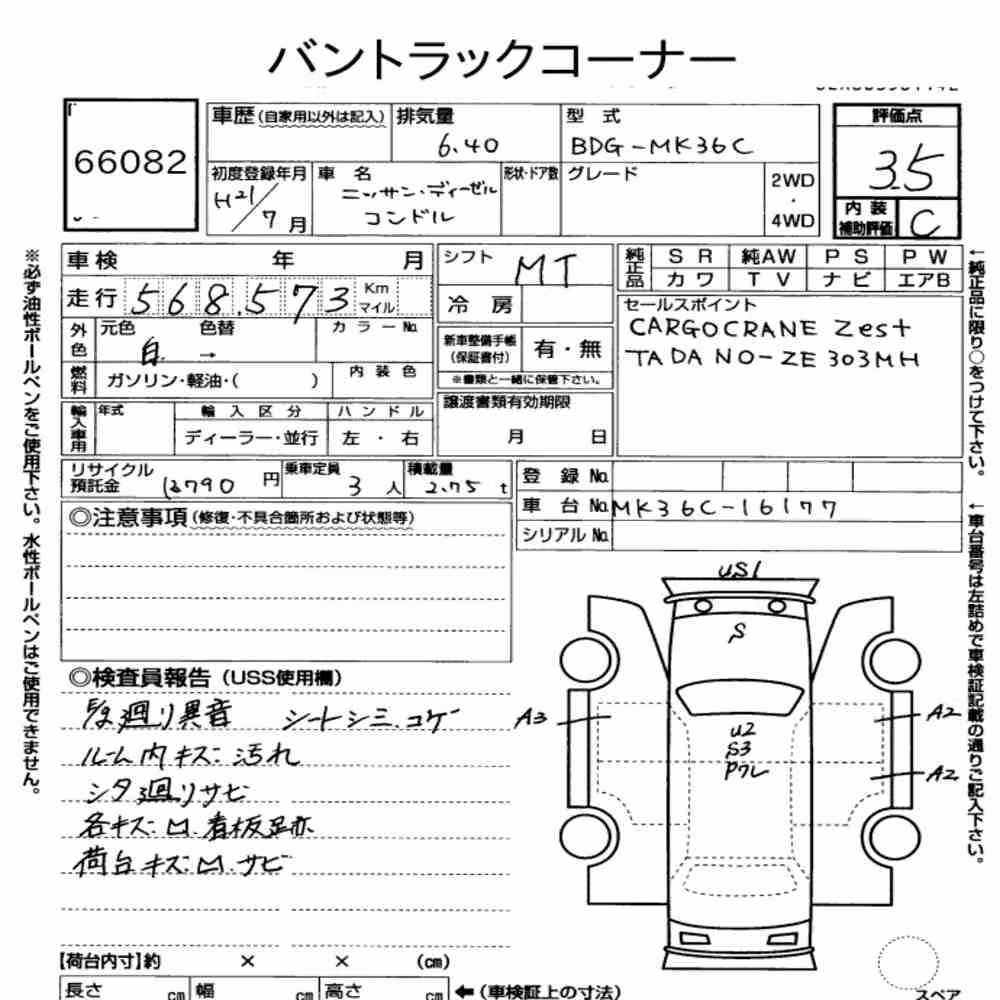 バントラックコーナー
66082
車歴 (自家用以外は記入)
排気量
6.40
型 式
BDG-MK36C
評価点
3.5
内 装
補助評価
C
初度登録年月
H21/7月
車 名
ニッサン・ディーゼル
コンドル
形状・ドア数
グレード
2WD
・
4WD
車 検 年 月
走行 568,573 Km マイル
シフト
MT
冷 房
純正品
S R 純AW P S P W
カワ T V ナビ エアB
外色
元色 色替
白 →
カ ラ ー No.
燃料
ガソリン・軽油・( )
内 装 色
新車整備手帳
(保証書付)
有・無
※書類と一緒に保管下さい。
譲渡書類有効期限
月 日
セールスポイント
CARGOCRANE Zest
TADANO-ZE303MH
輸入車用
年式
輸 入 区 分
ディーラー・並行
ハ ン ド ル
左 ・ 右
リサイクル
預託金
円
乗車定員
3 人
積載量
2.75 t
登 録 No.
車 台 No. MK36C-16177
シリアル No.
◎注意事項 (修復・不具合箇所および状態等)
◎検査員報告 (USS使用欄)
廻り異音 シートシミ.コゲ
ルーム内キズ.汚れ
シタ廻リサビ
各キズ.凹.看板跡
荷台キズ.凹.サビ
US1
S
A3
U2
S3
Pワレ
A2
A2
【荷台内寸】約 × × (cm)
長さ cm 幅 cm 高さ cm
←(車検証上の寸法)
スペア
※必ず油性ボールペンをご使用下さい。水性ボールペンはご使用できません。
←純正品に限り○をつけて下さい。
←車台番号は左詰めで車検証記載の通りご記入下さい。